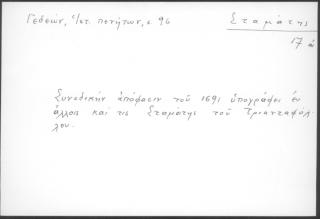 Γεδεών, Ἱστ. πενήτων, σ. 96
Σταμάτης
17 α
Συνοδικὴν ἀπόφασιν τοῦ 1691 ὑπογράφει ἐν
ἄλλοις καὶ τις Σταμάτης τοῦ Τριανταφύλ-
λου.